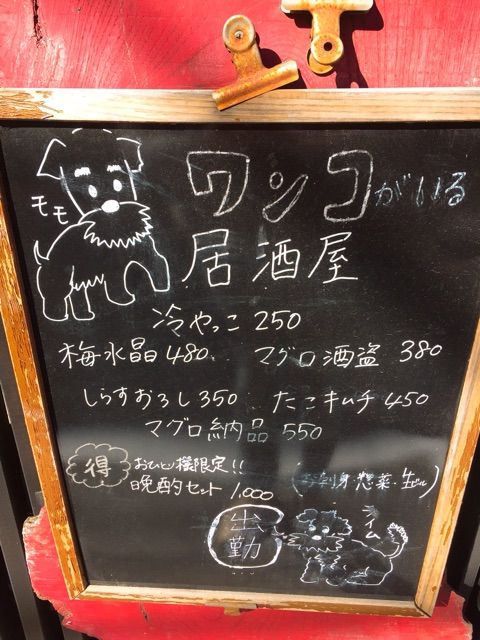 モモ
ワンコがいる
居酒屋
冷やっこ 250
梅水晶 480 マグロ酒盗 380
しらすおろし 350 たこキムチ 450
マグロ納品 550
得 おひとり様限定!!
晩酌セット 1,000 (刺身・惣菜・生ビール)
出勤
ライム